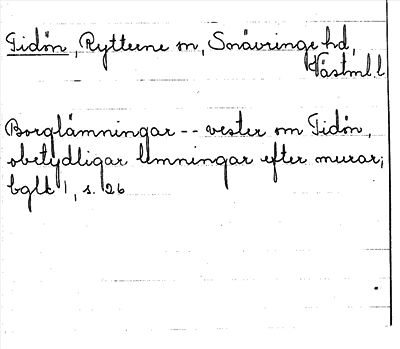 Tidön, Rytterne sn, Snävringe hd,
Västml. l
Borglämningar -- vester om Tidön,
obetydligar lemningar efter murar;
bglt 1, s. 26